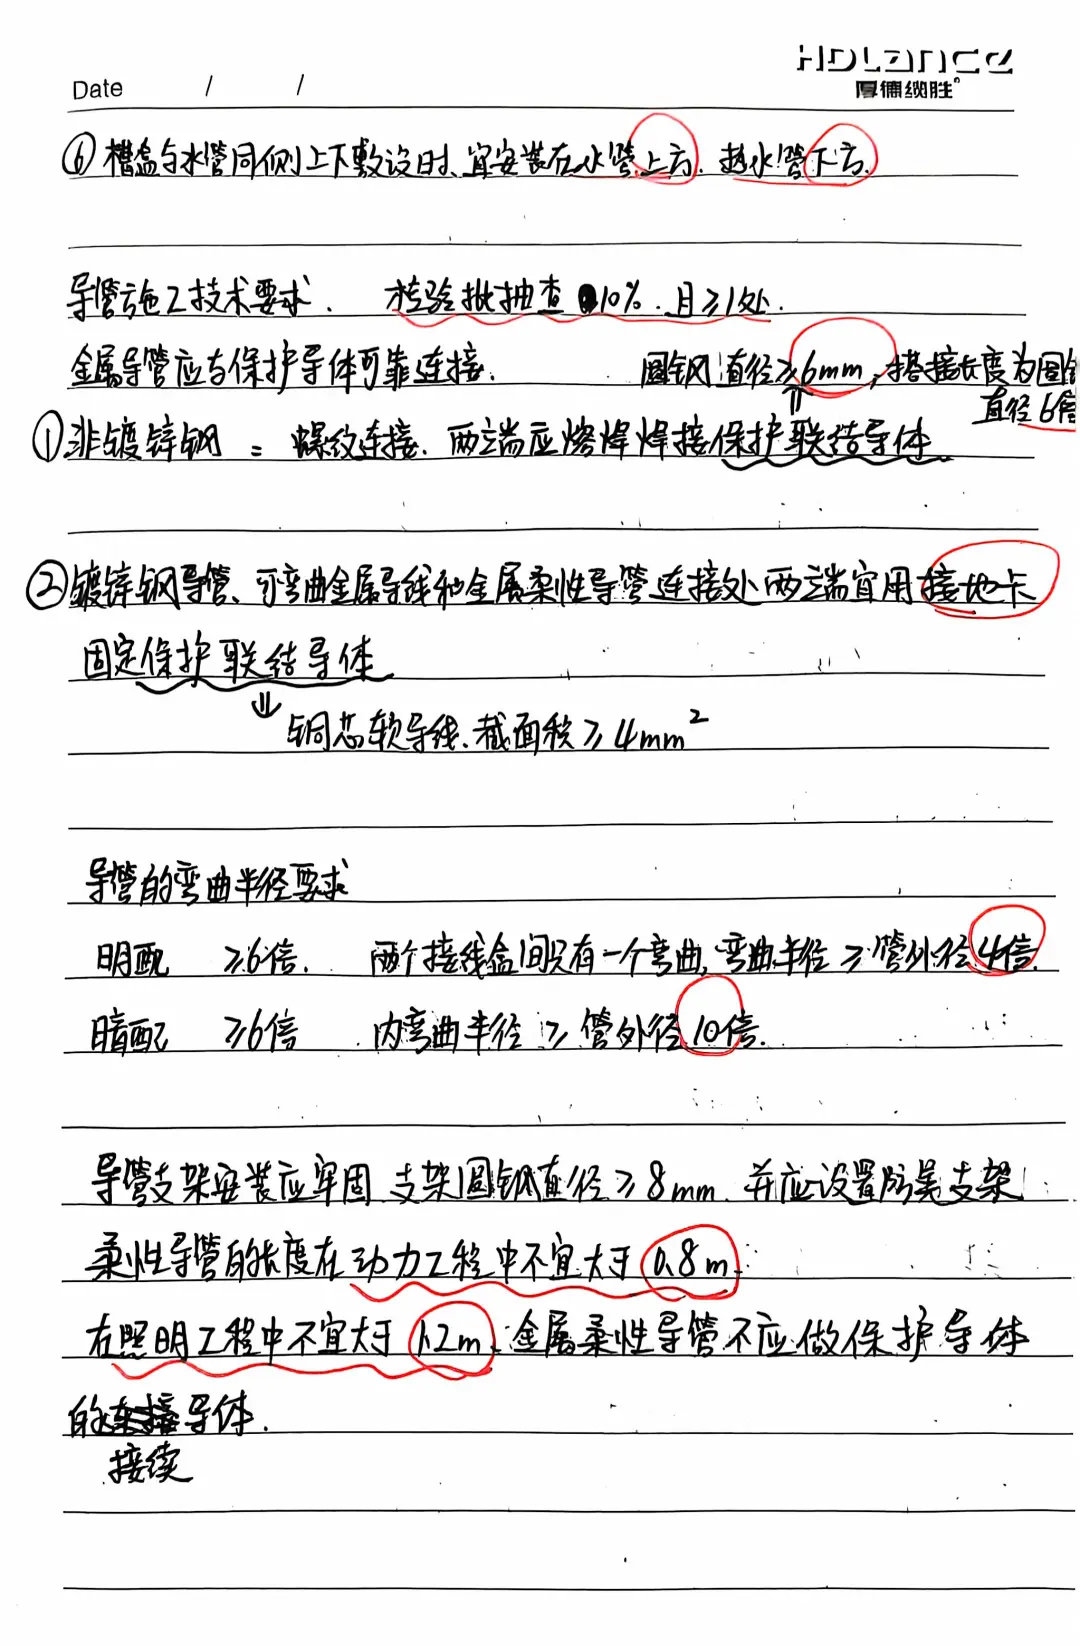 HDLANCE
厚德缆胜®
Date / /
⑥槽盒与水管同侧上下敷设时、宜安装在水管上方. 热水管下方.
导管施工技术要求. 检验批抽查10%.且≥1处.
金属导管应与保护导体可靠连接. 圆钢直径≥6mm,搭接长度为圆钢
直径6倍
①非镀锌钢:螺纹连接.两端应熔焊焊接保护联结导体
②镀锌钢导管、可弯曲金属导线和金属柔性导管连接处两端宜用接地卡
固定保护联结导体
⇓
铜芯软导线、截面积≥4mm²
导管的弯曲半径要求
明配 ≥6倍. 两个接线盒间只有一个弯曲,弯曲半径≥管外径4倍.
暗配 ≥6倍 内弯曲半径≥管外径10倍.
导管支架安装应牢固.支架圆钢直径≥8mm.并应设置防晃支架
柔性导管的长度在动力工程中不宜大于0.8m.
在照明工程中不宜大于1.2m、金属柔性导管不应做保护导体
的导体.
接续